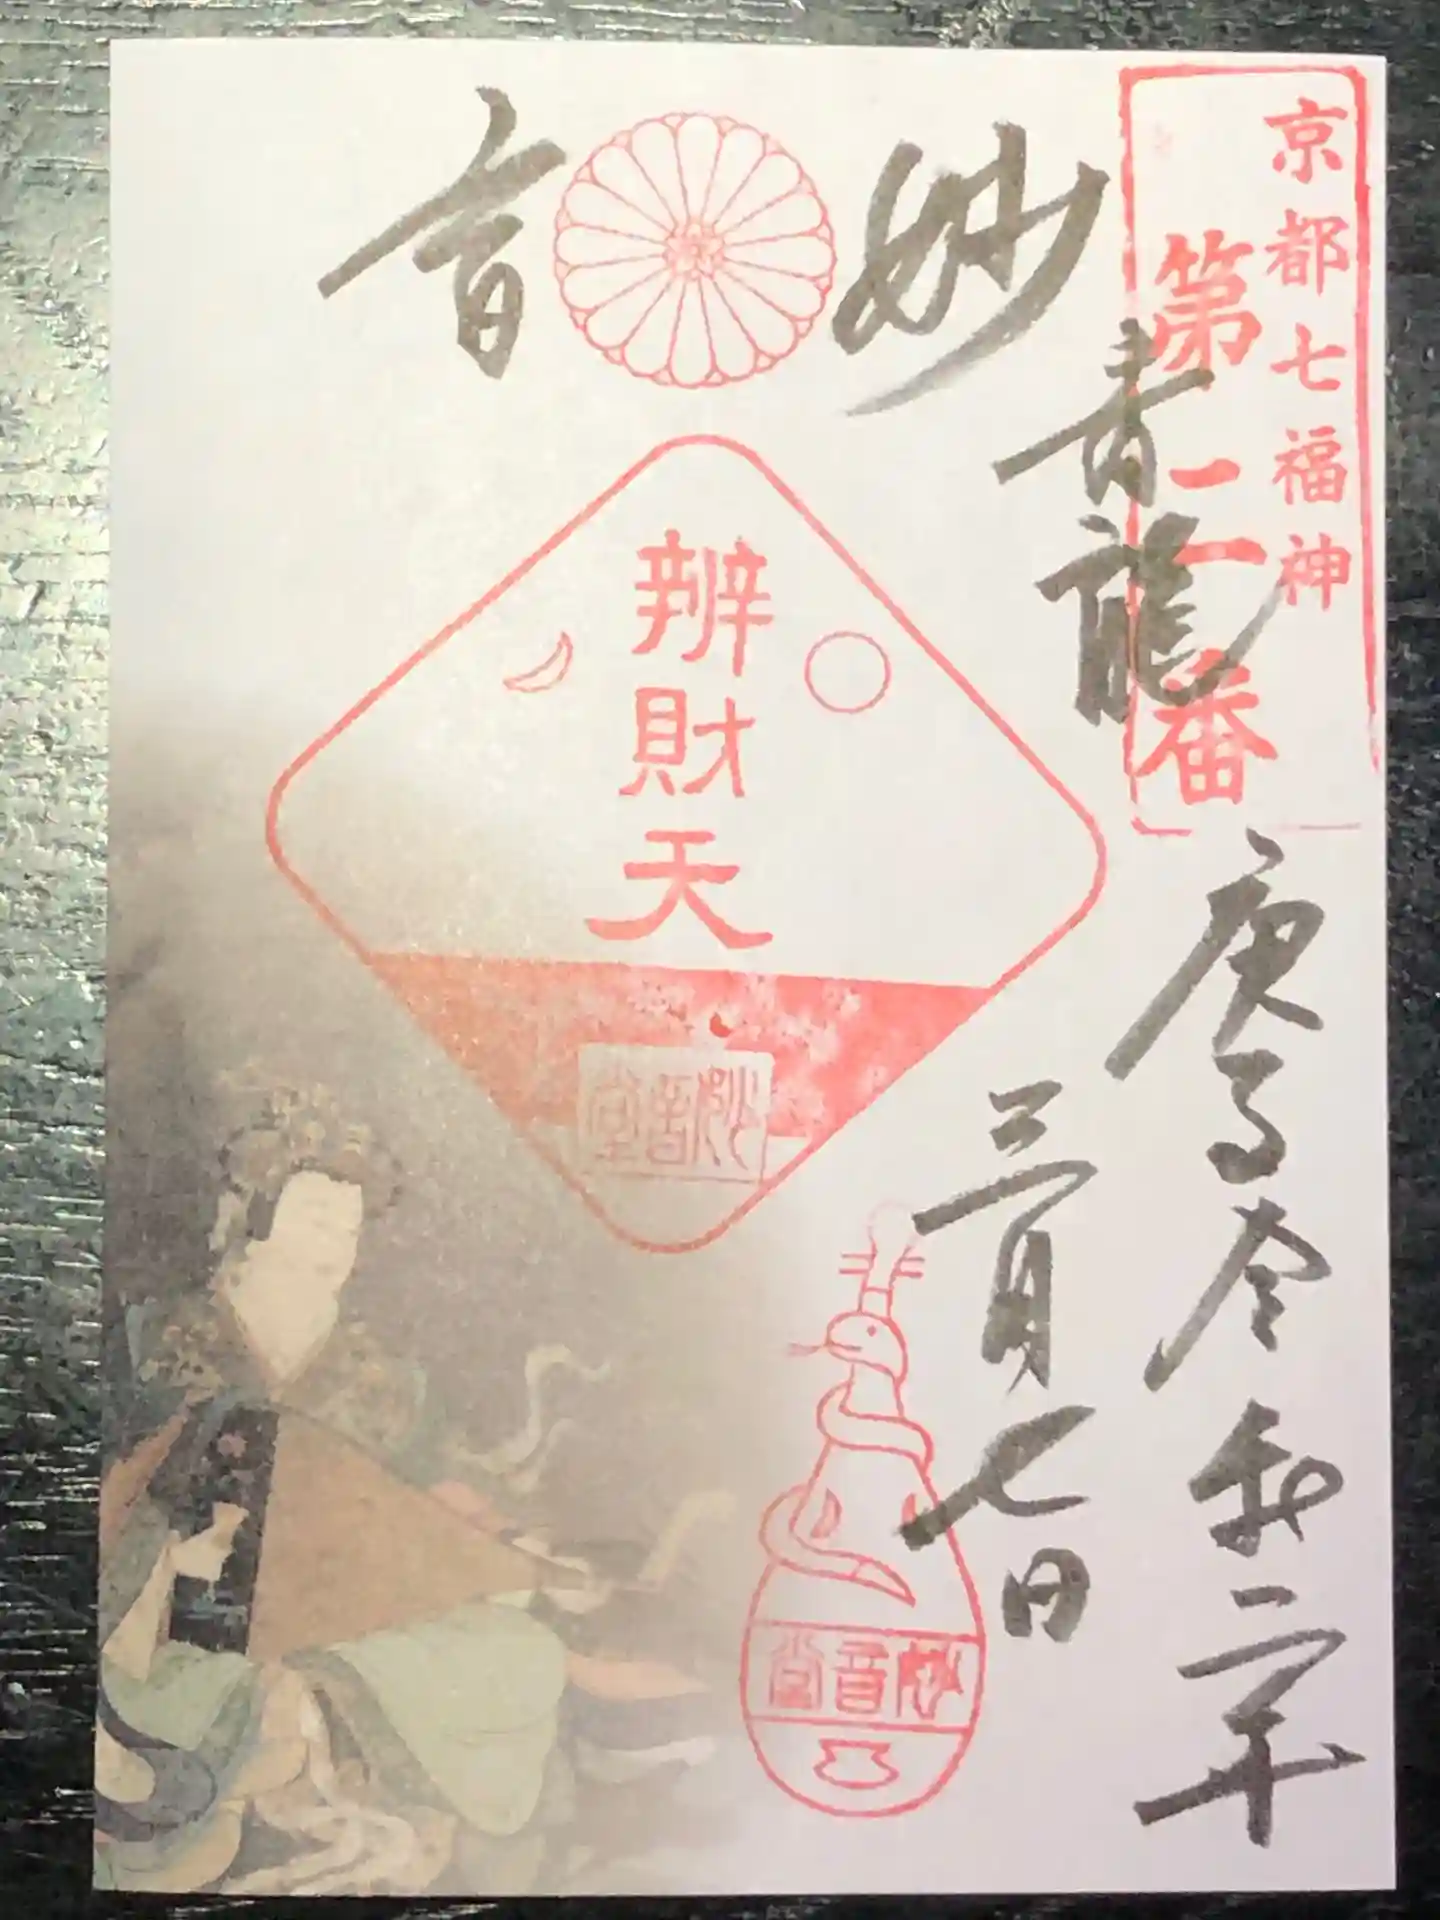 京都七福神
第二番
青龍
妙音
庚子令和二年
三月七日
辨財天
妙音堂
妙音堂